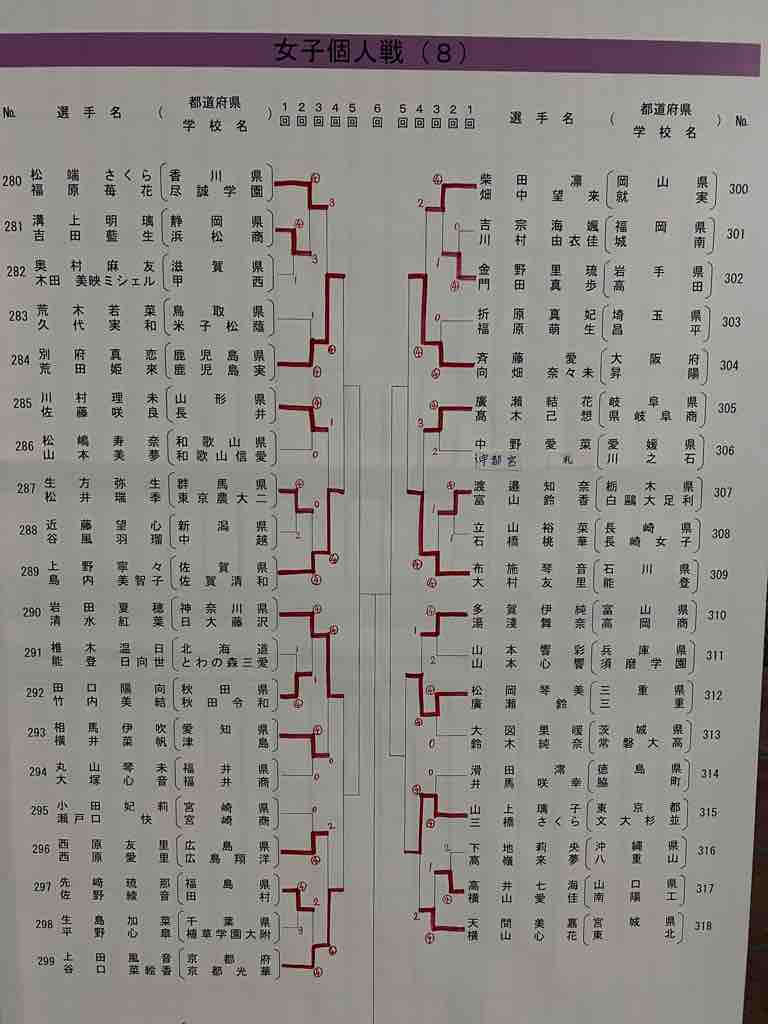 女子個人戦（８）
№ 選手名 （都道府県 学校名） 1回 2回 3回 4回 5回 6回 5回 4回 3回 2回 1回 選手名 （都道府県 学校名） №
280 松端さくら 香川県
福原苺花 尽誠学園
281 溝上明璃 静岡県
吉田藍生 浜松商
282 奥村麻友 滋賀県
木田美映ミシェル 甲西
283 荒木若菜 鳥取県
久代実和 米子松蔭
284 別府真恋 鹿児島県
荒田姫來 鹿児島実
285 川村理未 山形県
佐藤咲良 長井
286 松嶋寿奈 和歌山県
山本美夢 和歌山信愛
287 生方弥生 群馬県
松井瑞季 東京農大二
288 近藤望心 新潟県
谷風羽瑠 中越
289 上野寧々 佐賀県
島内美智子 佐賀清和
290 岩田夏穂 神奈川県
清水紅葉 日大藤沢
291 椎木温日 北海道
能登日向世 とわの森三愛
292 田口陽向 秋田県
竹内美結 秋田令和
293 相馬伊吹 愛知県
横井菜帆 津島
294 丸山琴未 福井県
大塚心音 福井商
295 小田妃莉 宮崎県
瀬戸口快 宮崎商
296 西原友里 広島県
西原愛里 広島翔洋
297 先﨑琉那 福島県
佐野綾音 田村
298 生島加菜 千葉県
平野心皐 植草学園大附
299 上田風音 京都府
谷口菜絵香 京都光華
柴田凛 岡山県 300
畑中望来 就実
吉宗海颯 福岡県 301
川村由衣佳 城南
金野里琉 岩手県 302
門田真歩 高田
折原真妃 埼玉県 303
福原萌生 昌平
斉藤愛 大阪府 304
向畑奈々未 昇陽
廣瀬結花 岐阜県 305
髙木己想 県岐阜商
中野愛菜 愛媛県 306
宇都宮 礼 川之石
渡邉知奈 栃木県 307
富山鈴香 白鷗大足利
立山裕菜 長崎県 308
石橋桃華 長崎女子
布施琴音 石川県 309
大村友里 能登
多賀伊純 富山県 310
湯淺舞奈 高岡商
山本響彩 兵庫県 311
山本心響 須磨学園
松岡琴美 三重県 312
廣瀬鈴 三重
大図里暖 茨城県 313
鈴木純奈 常磐大高
滑田澪 徳島県 314
井馬咲幸 脇町
山上璃子 東京都 315
三橋さくら 文大杉並
下地莉央 沖縄県 316
高嶺来夢 八重山
高井七海 山口県 317
横山愛佳 南陽工
天間美嘉 宮城県 318
横山心花 東北